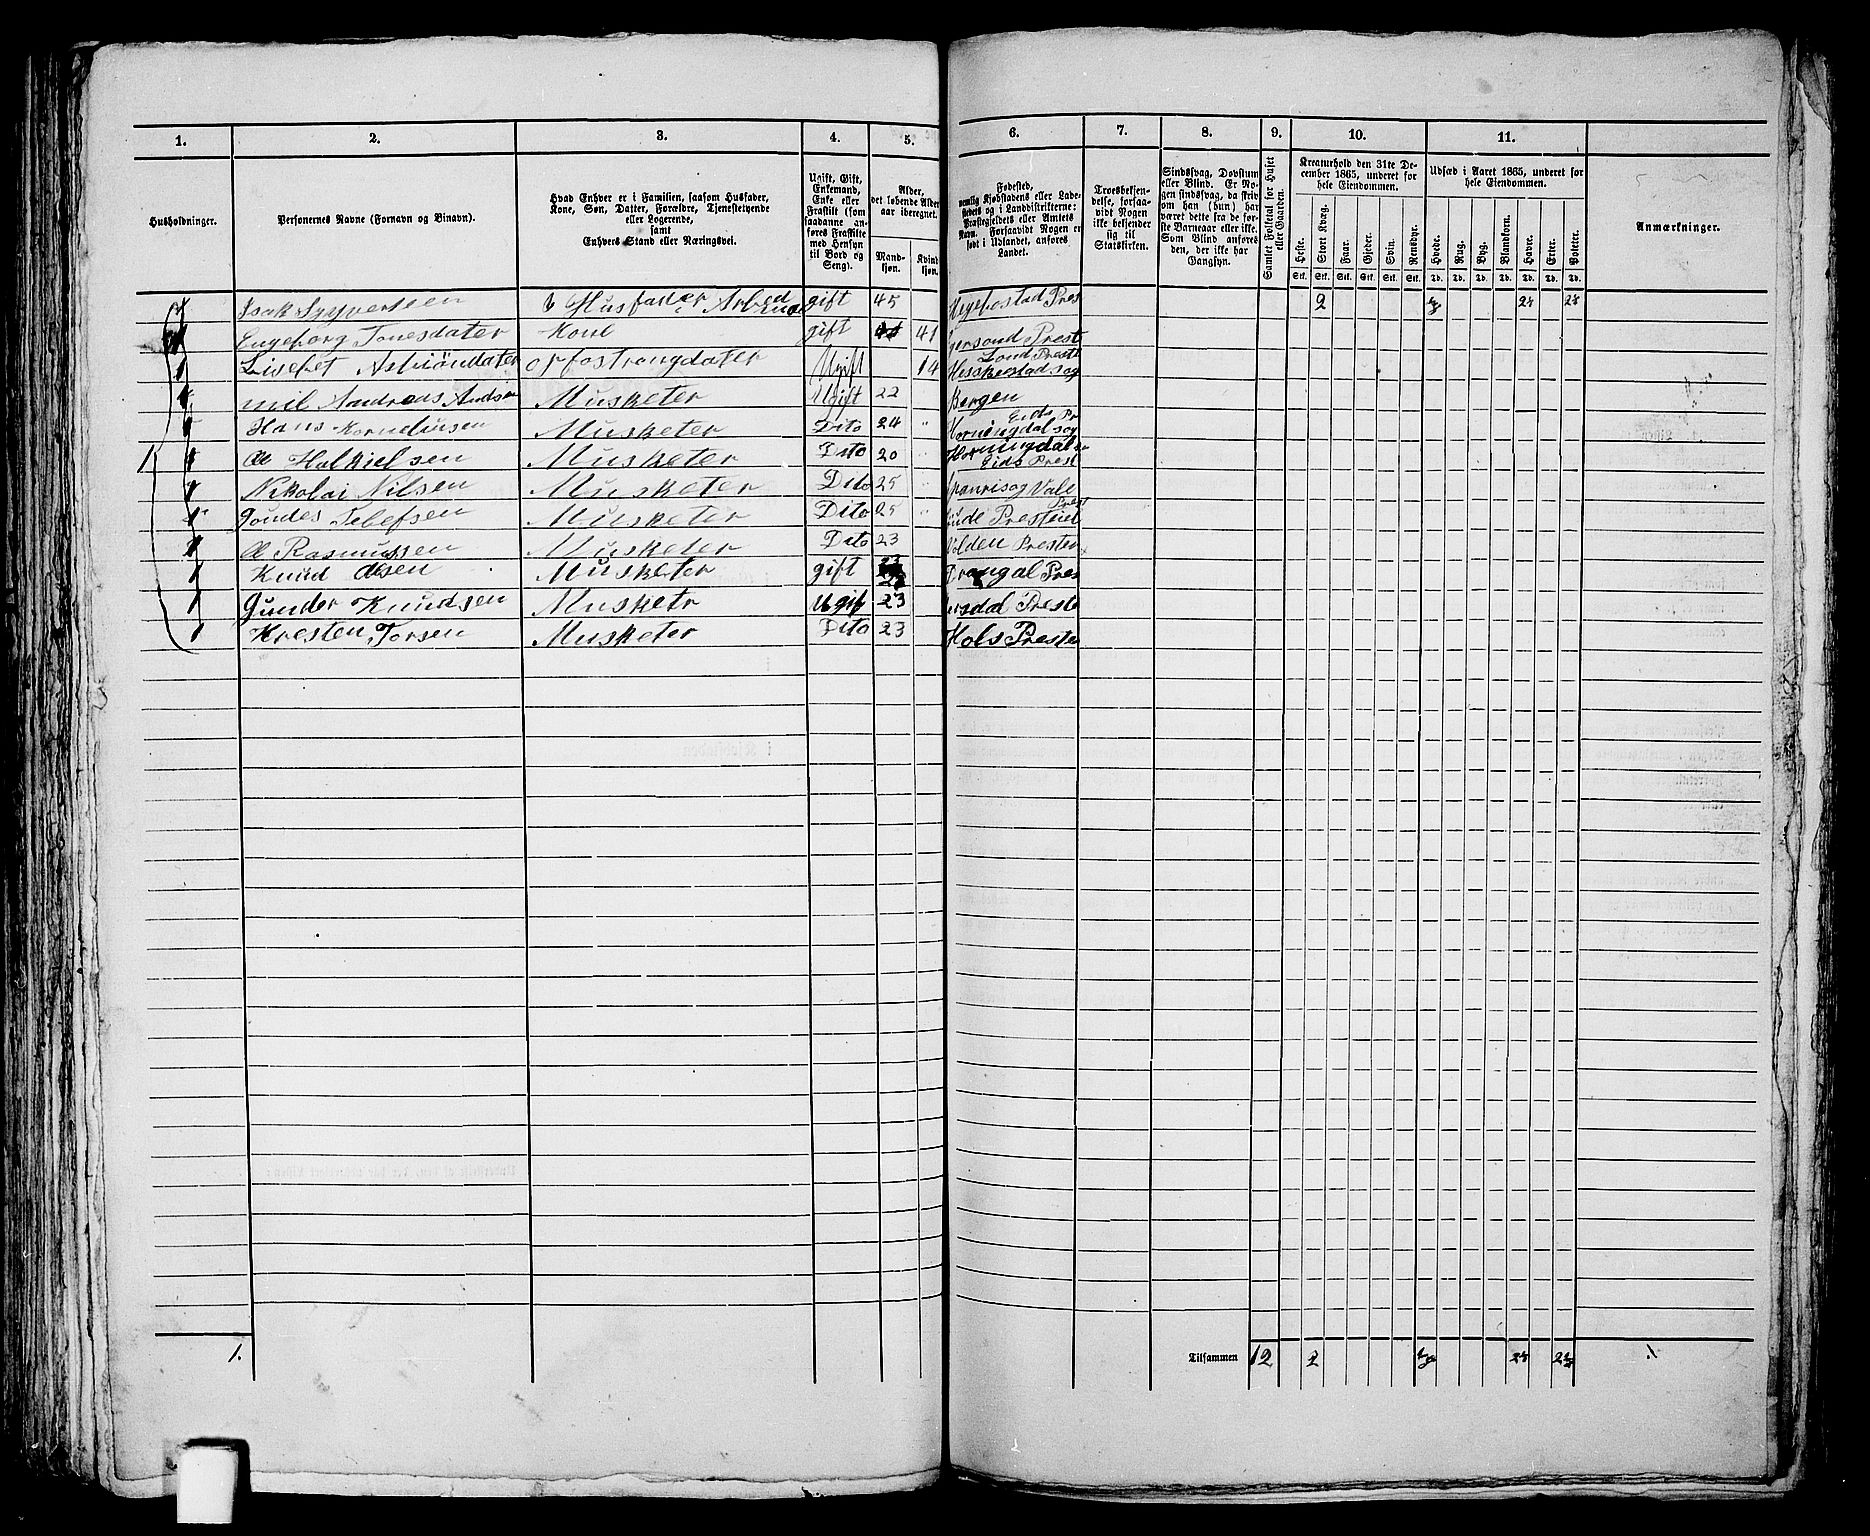 1. 2. 3. 4. 5. 6. 7. 8. 9. 10. 11.
Husholdninger.
Personernes Navne (Fornavn og Binavn).
Hvad Enhver er i Familien, saasom Husfader,
Kone, Søn, Datter, Forældre, Tjenestetyende
eller Logerende,
samt
Enhvers Stand eller Næringsvei.
Ugift, Gift,
Enkemand,
Enke eller
Fraskilt (som
saadanne an-
føres Fraskilte
med Hensyn
til Bord og
Seng).
Alder,
det løbende Alder
aar iberegnet.
Mand-
kjøn.
Kvind
kjøn.
Fødested,
nemlig Kjøbstadens eller Lade-
stedets og i Landdistrikterne:
Præstegjeldets eller Amtets
Navn. Forsaavidt Nogen er
født i Udlandet, anføres
Landet.
Troesbekjen-
delse, forsaa-
vidt Nogen
ikke bekjender
sig til
Statskirken.
Sindssvag, Døvstum
eller Blind. Er No-
gen sindssvag, da skriv
om han (hun) har
været dette fra de før-
ste Barneaar eller ikke.
Som Blind anføres
den, der ikke har
Gangsyn.
Samlet Folketal for Huset
eller Gaarden.
Kreaturhold den 31te De-
cember 1865, underet for
hele Eiendommen.
Heste. Stort Kvæg. Faar. Gjeder. Svin. Rensdyr.
Stk. Stk. Stk. Stk. Stk. Stk.
Udsæd i Aaret 1865, underet for
hele Eiendommen.
Hvede. Rug. Byg. Blandkorn. Havre. Erter. Poteter.
Td. Td. Td. Td. Td. Td. Td.
Anmærkninger.
Isak Syvertsen Husfader gift 45 Hegebostad Pres 2
Engeborg Tonesdater Kone gift 41 Prest
Lisebet opfostrongdater Ugift 14 Lond Preste
Andreas Musketer Ugift 22 Bergen
Hans Kornelinsen Musketer Dito 24 Eids Pr
Horningdal sog
1 Ole Musketer Dito 20 Horningdal
Eids Prest
Nikolai Nilsen Musketer Dito 25 Vale
Musketer Dito 25 Prest
Ole Rasmussen Musketer Dito 23 Volden Prester
Knud Olsen Musketer gift Drangal Pres
Gunder Knudsen Musketr Ugif 23 Preste
Kresten Torsen Musketer Dito 23 Hols Preste
1. Tilsammen 12 2 1.